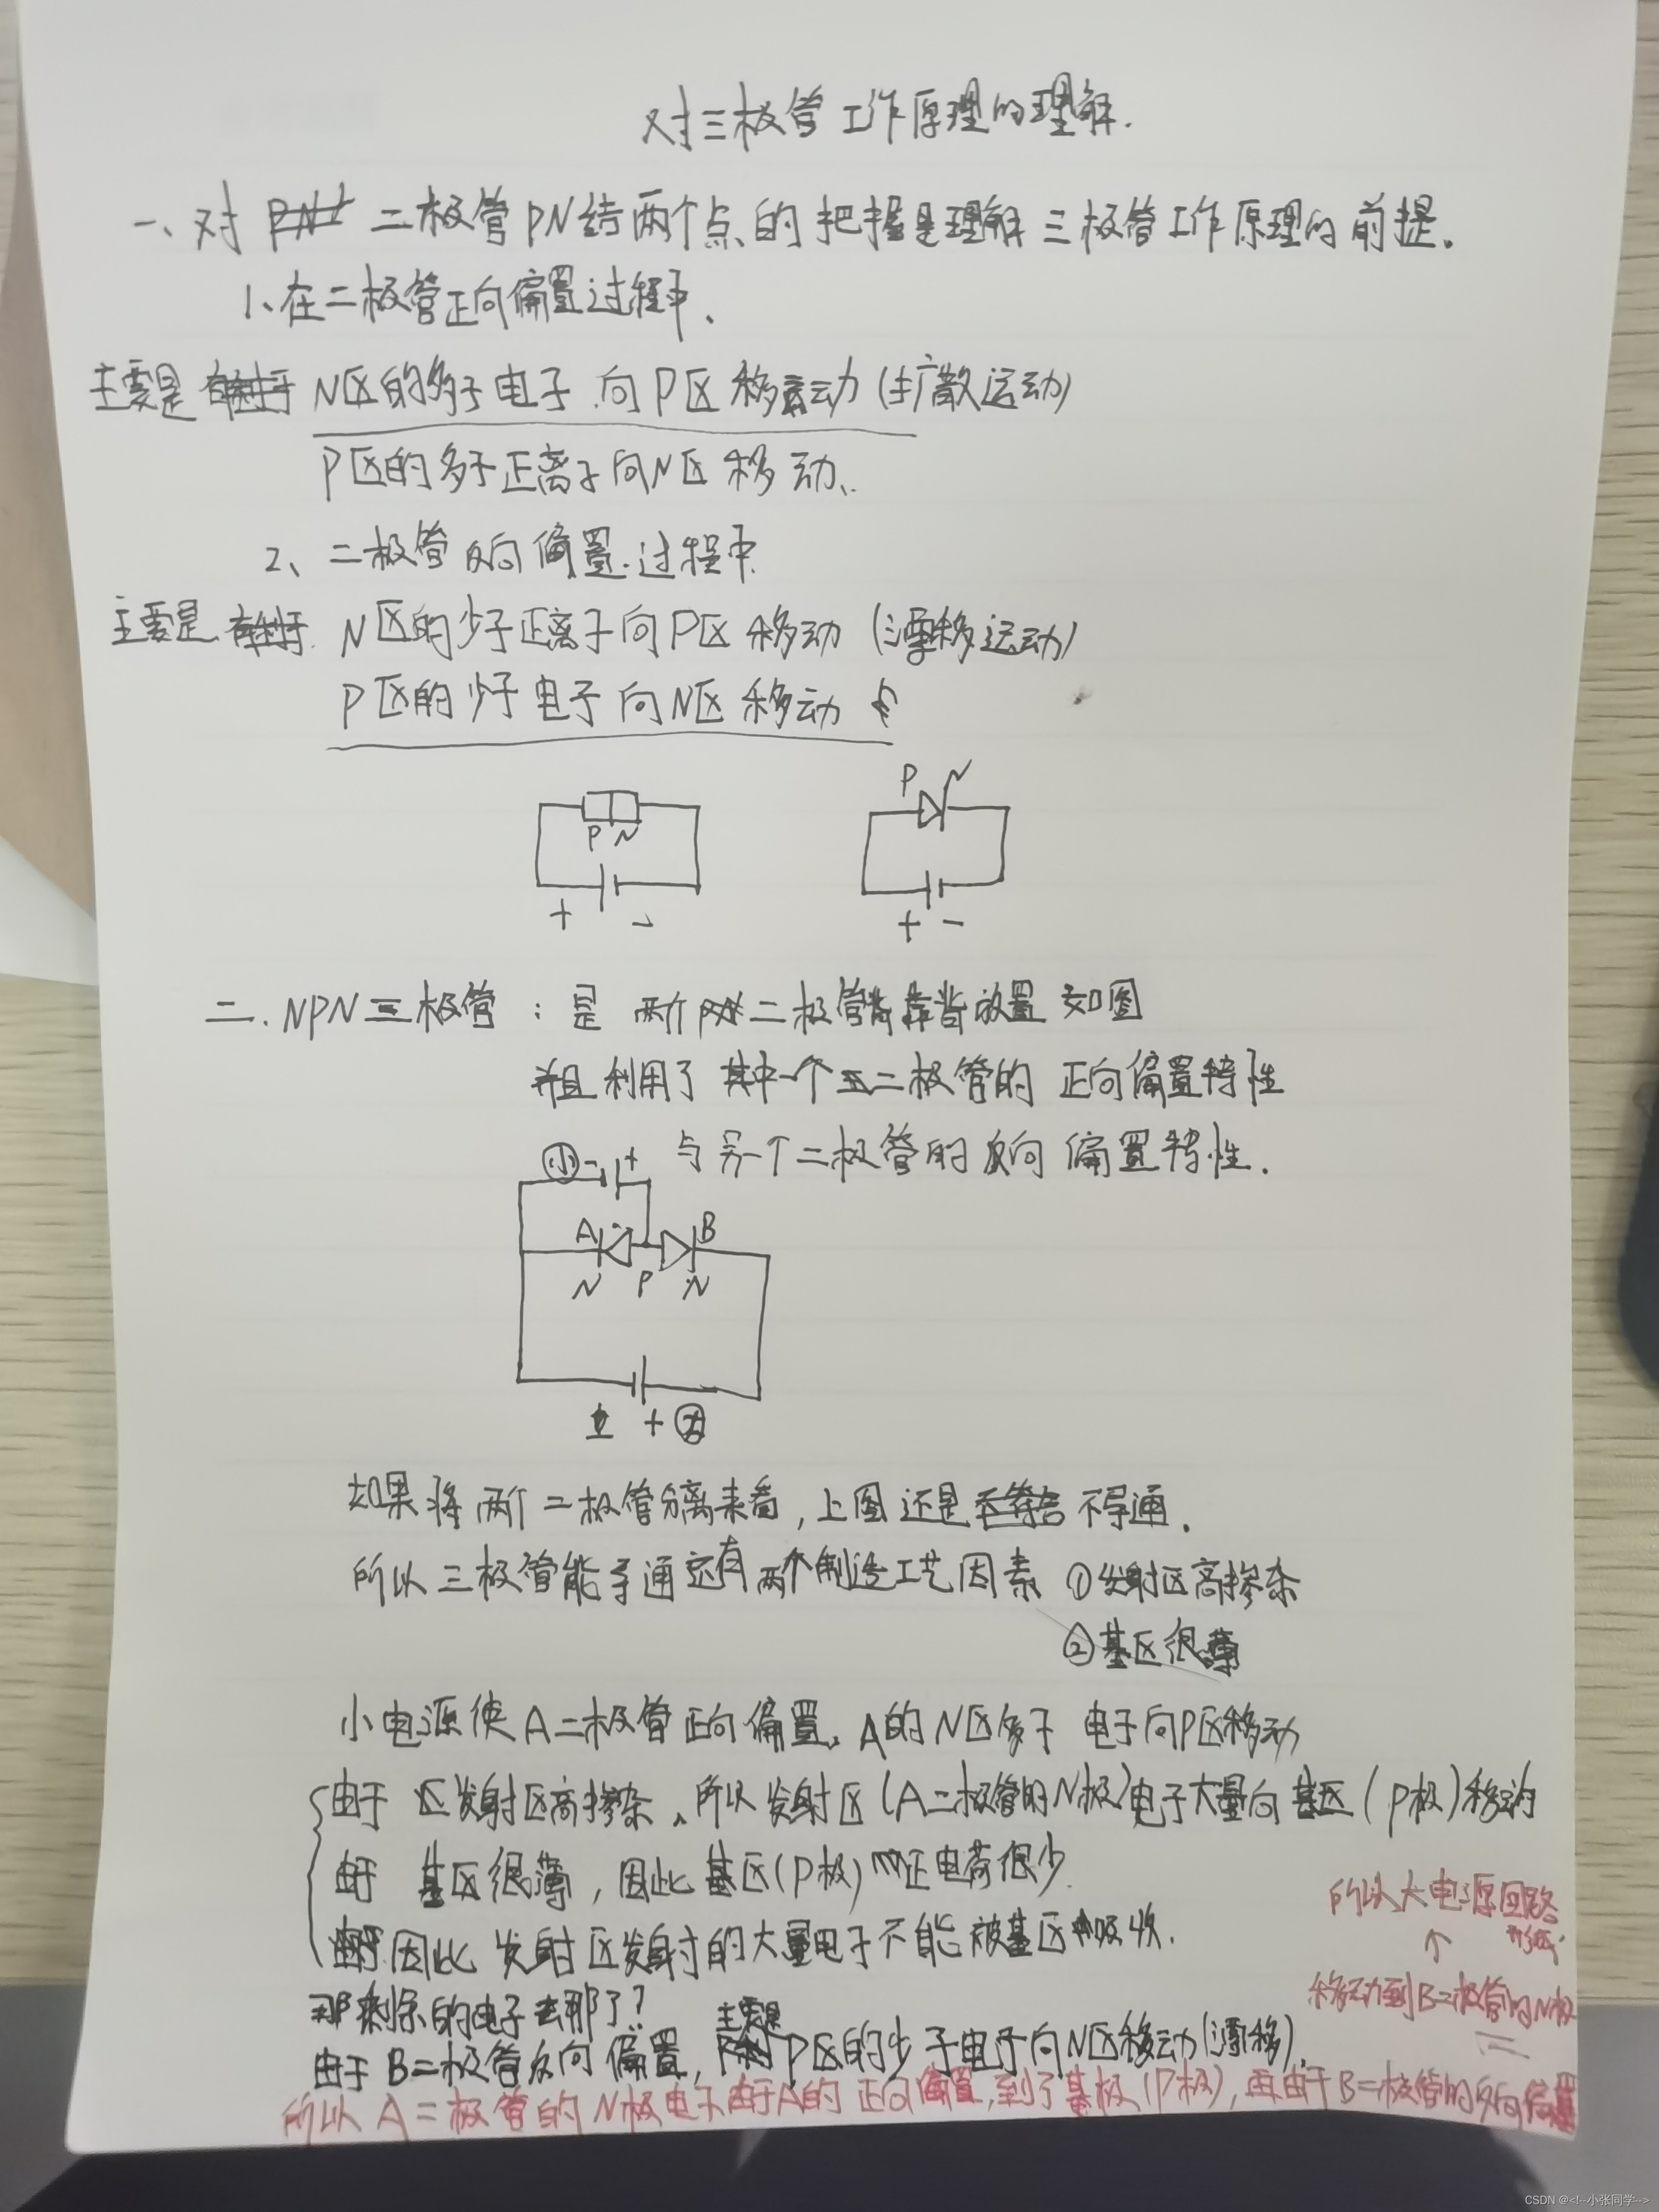 对三极管工作原理的理解.
一、对 二极管PN结两个点的把握是理解三极管工作原理的前提.
1、在二极管正向偏置过程中、
主要是 N区的多子电子向P区移动(扩散运动)
P区的多子正离子向N区移动、
2、二极管反向偏置过程中
主要是 N区的少子正离子向P区移动(漂移运动)
P区的少子电子向N区移动
P N
P N
+ -
+ -
二. NPN三极管:是两个二极管背靠背放置 如图
并且利用了其中一个二极管的正向偏置特性
与另一个二极管的反向偏置特性.
小 - +
A B
N P N
+ 大
如果将两个二极管分离来看,上图还是 不导通.
所以三极管能导通还有两个制造工艺因素 ①发射区高掺杂
②基区很薄
小电源使A二极管正向偏置、A的N区多子 电子向P区移动
由于 发射区高掺杂、所以发射区(A二极管的N极)电子大量向基区(P极)移动
由于 基区很薄,因此基区(P极)的正电荷很少.
因此 发射区发射的大量电子不能被基区吸收.
那剩余的电子去那了?
由于B二极管反向偏置,主要是P区的少子电子向N区移动(漂移).
所以A二极管的N极电子由于A的正向偏置,到了基极(P极),再由于B二极管的反向偏置
移动到B二极管的N极
↑
所以大电源回路
形成.
CSDN @<!--小张同学-->